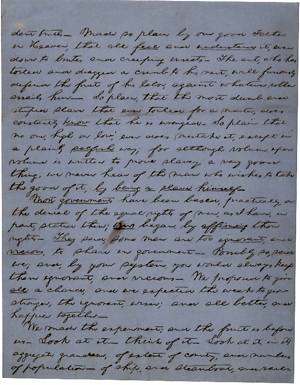 dent truth — Made so plain by our good Father
in Heaven, that all feel and understand it, even
down to brutes and creeping insects — The ant, who has
toiled and dragged a crumb to his nest, will furiously
defend the fruit of his labor, against whatever robber
assails him — So plain, that the most dumb and
stupid slave that ever toiled for a master, does
constantly know that he is wronged — So plain that
no one, high or low, ever does mistake it, except in
a plainly selfish way; for although volume upon
volume is written to prove slavery a very good
thing, we never hear of the man who wishes to take
the good of it, by being a slave himself —
Most governments have been based, practically, on
the denial of the equal rights of men, as I have, in
part, stated them; ours began, by affirming those
rights — They said, some men are too ignorant, and
vicious, to share in government — Possibly so, said
we; and, by your system, you would always keep
them ignorant, and vicious — We proposed to give
all a chance; and we expected the weak to grow
stronger, the ignorant, wiser; and all better, and
happier together —
We made the experiment; and the fruit is before
us — Look at it — think of it — Look at it, in its
aggregate grandeur, of extent of country, and numbers
of population — of ship, and steamboat, and rail-